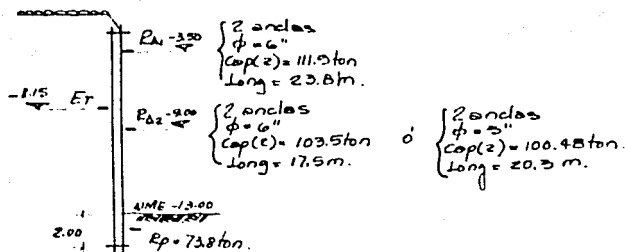 RA1 -3.50
2 anclas
φ = 6"
Cap(2) = 111.9 ton
Long = 23.8m.
-8.15 ET
RA2 -9.00
2 anclas
φ = 6"
Cap(2) = 103.5 ton
Long = 17.5m.
ó
2 anclas
φ = 5"
Cap(2) = 100.48 ton
Long = 20.3 m.
NME -13.00
2.00
Rp = 73.8 ton.